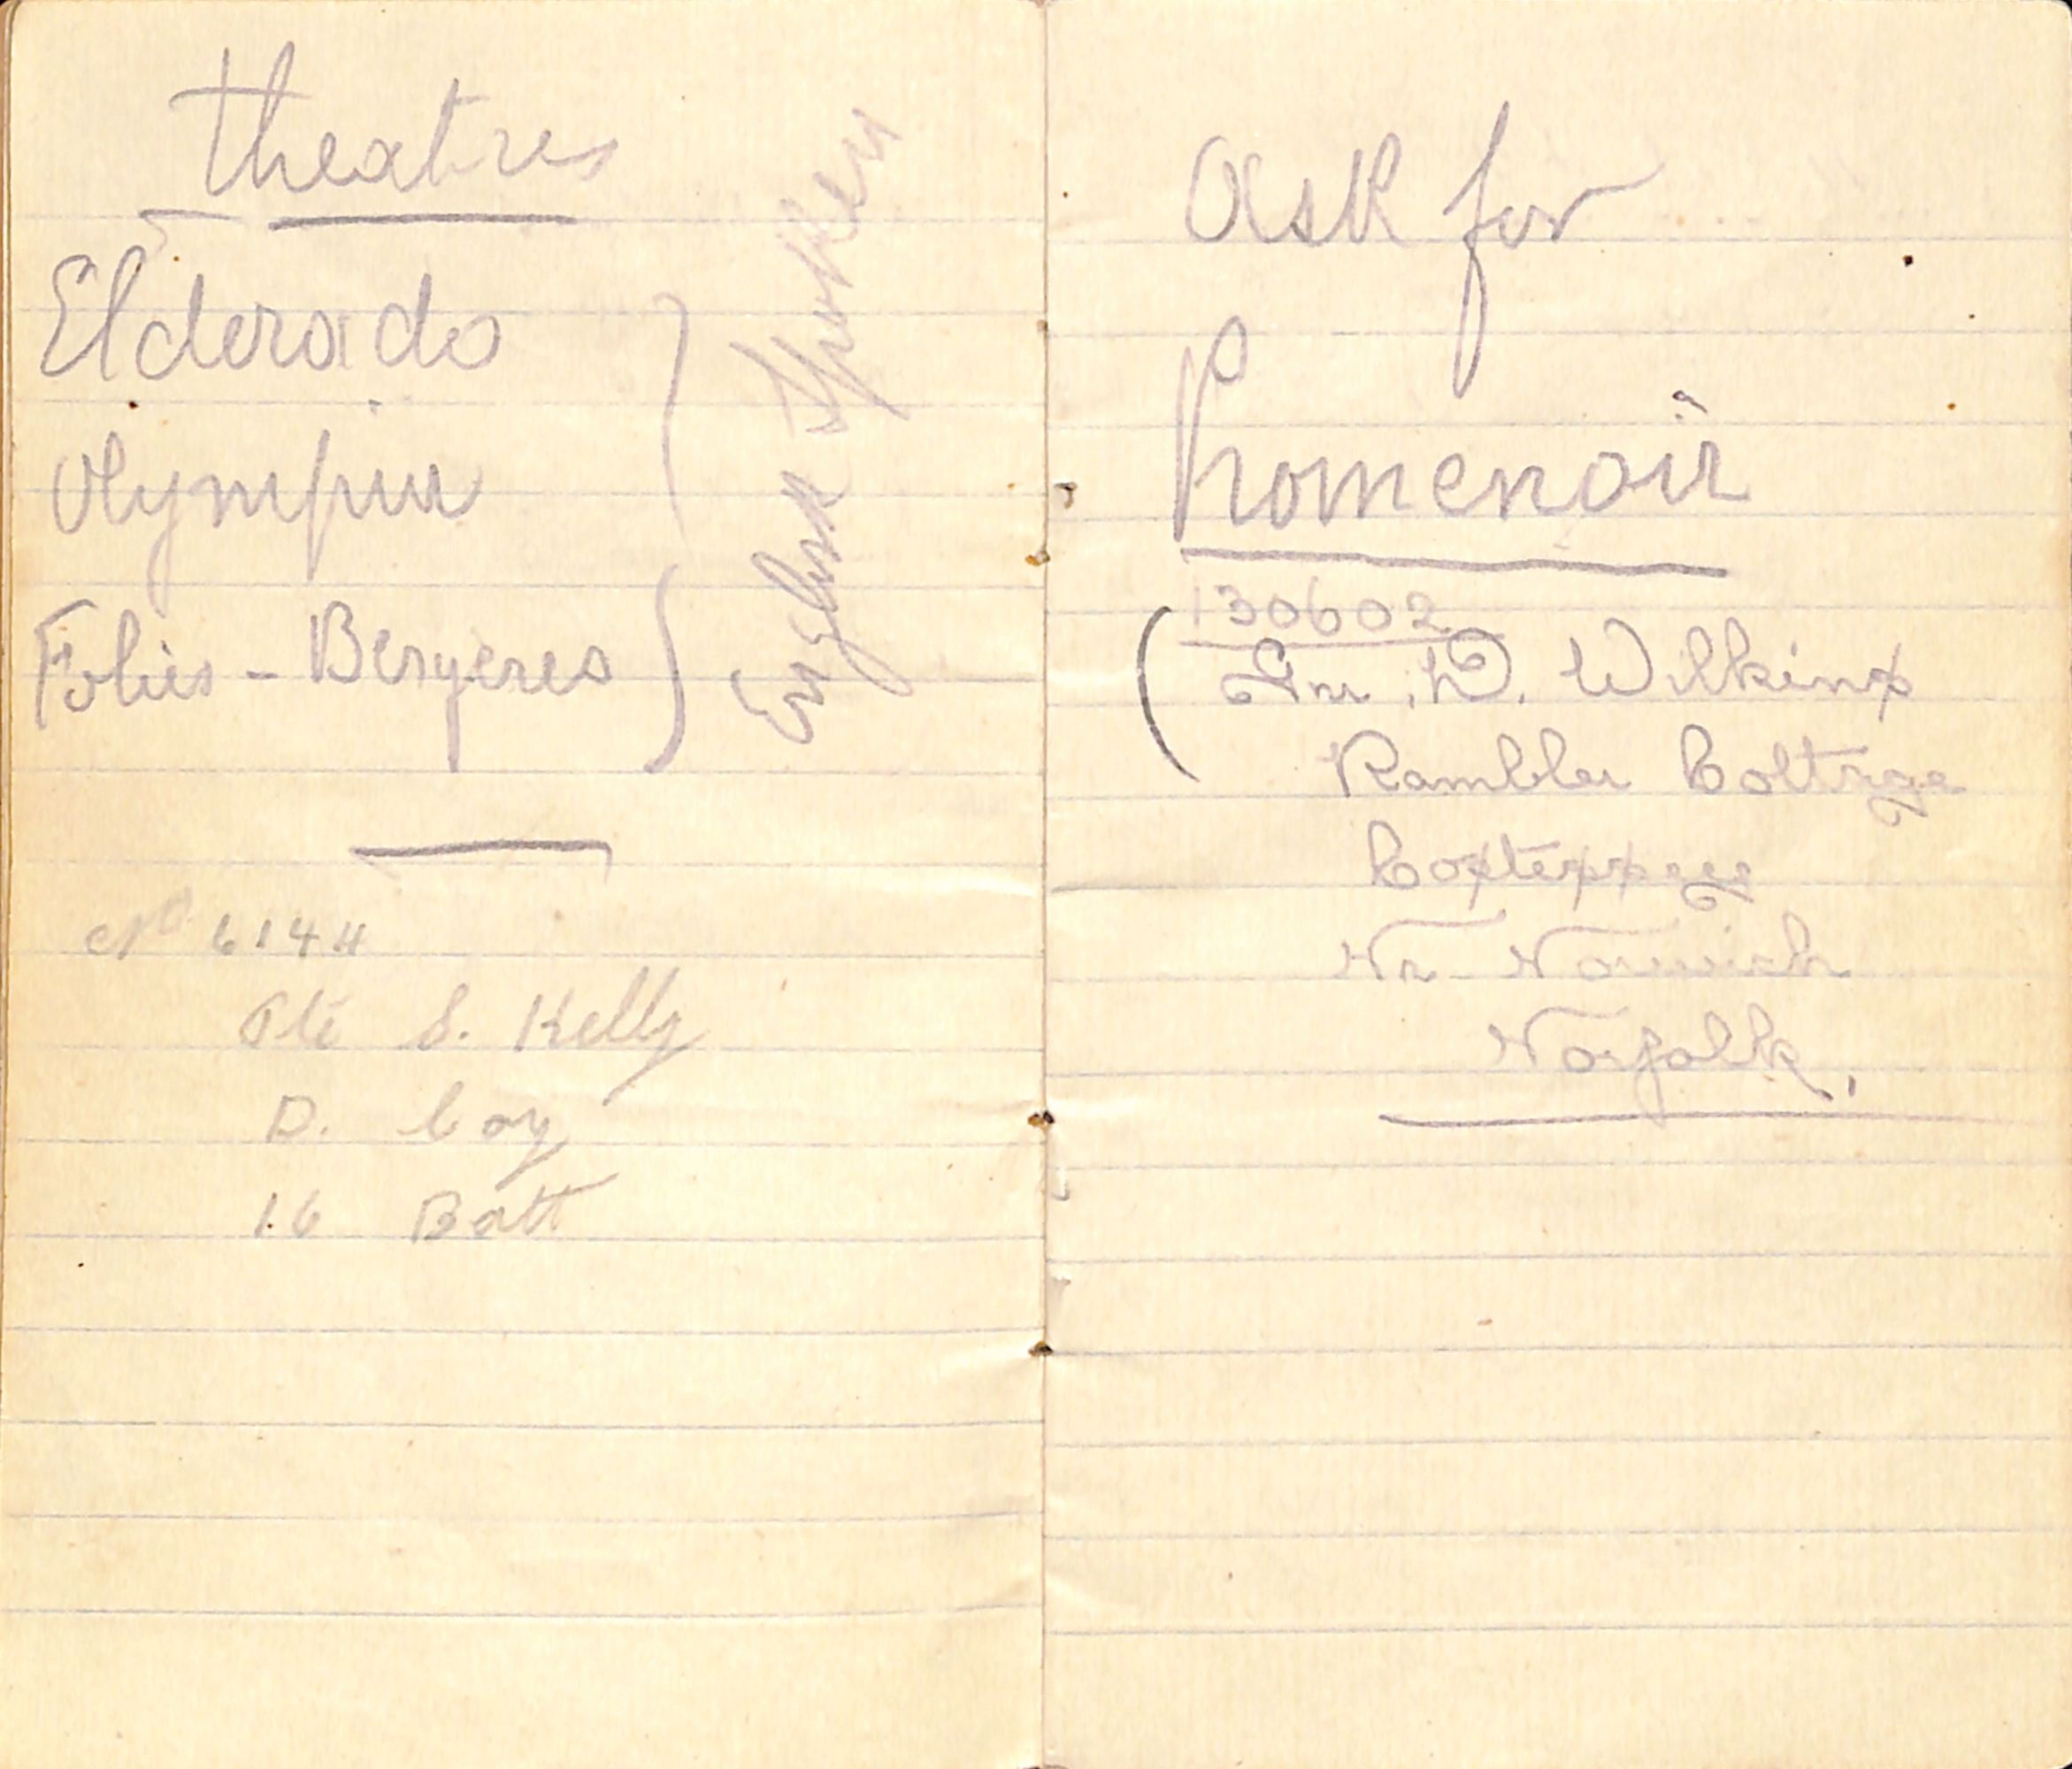 Theatres
Elderado
Olympia
Folies - Bergeres
English Spoken
No 6144
Pte S. Kelly
D. Coy
16 Batt
Ask for
Promenoir
130602
Gnr. D. Wilkins
Rambler Cottage
Costessey
Nr Norwich
Norfolk.